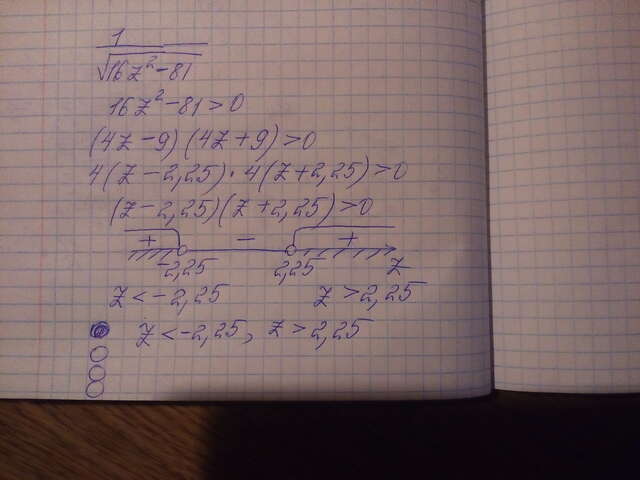 1
√16z²-81
16z²-81>0
(4z-9)(4z+9)>0
4(z-2,25)·4(z+2,25)>0
(z-2,25)(z+2,25)>0
+ - +
-2,25 2,25 z
z<-2,25 z>2,25
z<-2,25, z>2,25